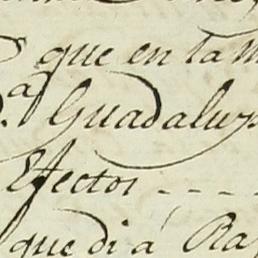 que en la
a
Guadalup
Efectos - - - -
que di á Ra